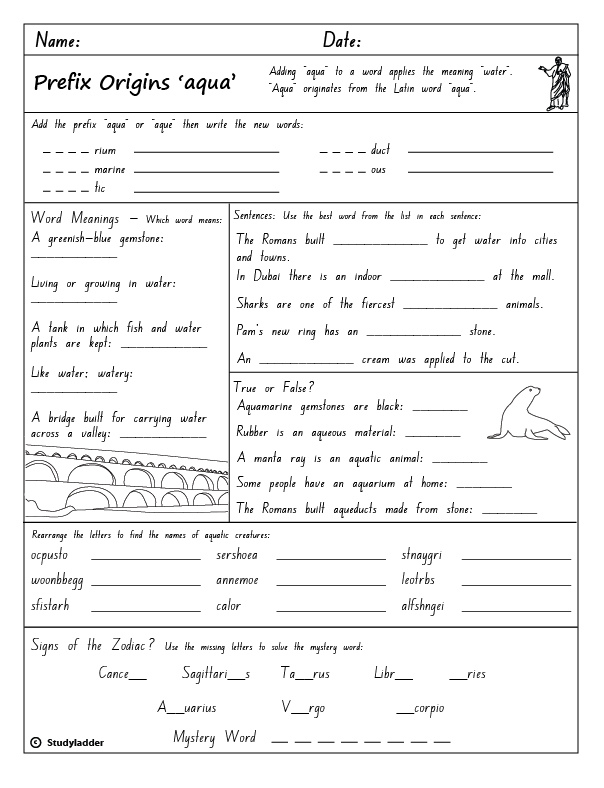 Name: Date:
Prefix Origins ‘aqua’
Adding "aqua" to a word applies the meaning "water".
"Aqua" originates from the Latin word "aqua".
Add the prefix "aqua" or "aque" then write the new words:
_ _ _ _ rium ____________ _ _ _ _ duct ____________
_ _ _ _ marine ____________ _ _ _ _ ous ____________
_ _ _ _ tic ____________
Word Meanings – Which word means:
A greenish-blue gemstone:
____________
Living or growing in water:
____________
A tank in which fish and water
plants are kept: ____________
Like water; watery:
____________
A bridge built for carrying water
across a valley: ____________
Sentences: Use the best word from the list in each sentence:
The Romans built ____________ to get water into cities
and towns.
In Dubai there is an indoor ____________ at the mall.
Sharks are one of the fiercest ____________ animals.
Pam's new ring has an ____________ stone.
An ____________ cream was applied to the cut.
True or False?
Aquamarine gemstones are black: ________
Rubber is an aqueous material: ________
A manta ray is an aquatic animal: ________
Some people have an aquarium at home: ________
The Romans built aqueducts made from stone: ________
Rearrange the letters to find the names of aquatic creatures:
ocpusto ____________ sershoea ____________ stnaygri ____________
woonbbegg ____________ annemoe ____________ leotrbs ____________
sfistarh ____________ calor ____________ alfshngei ____________
Signs of the Zodiac? Use the missing letters to solve the mystery word:
Cance__ Sagittari__s Ta__rus Libr__ __ries
A__uarius V__rgo __corpio
Mystery Word _ _ _ _ _ _ _ _
© Studyladder